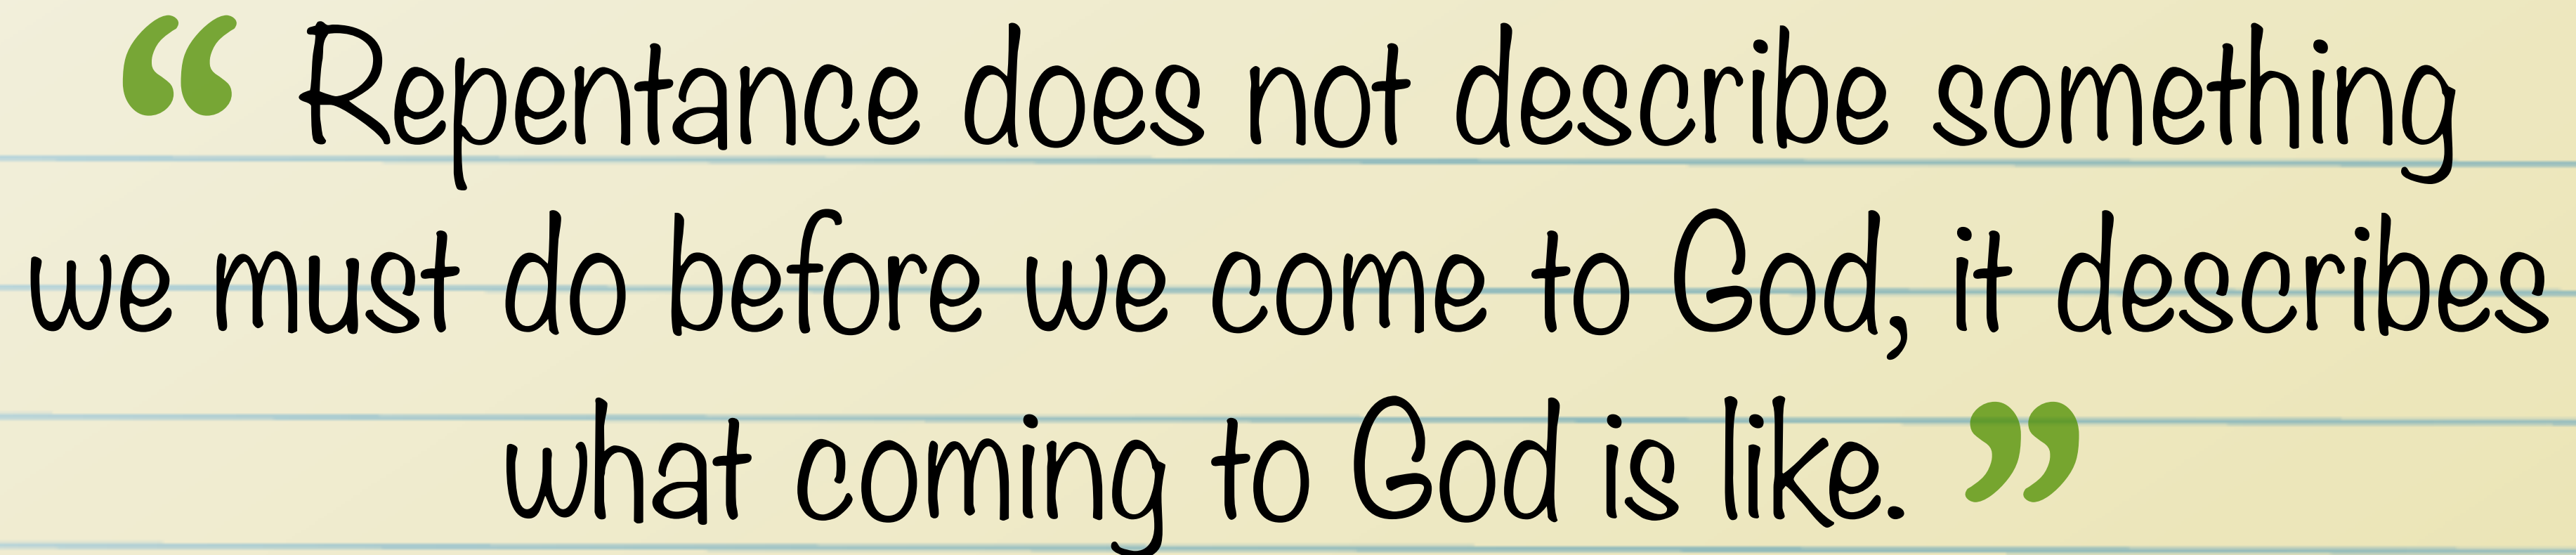 “ Repentance does not describe something
we must do before we come to God, it describes
what coming to God is like. ”